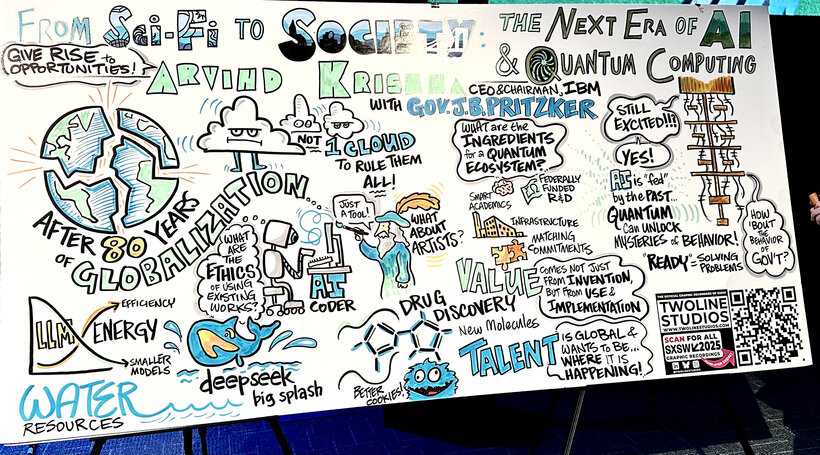 FROM Sci-Fi TO SOCIETY:
THE NEXT ERA OF AI
& QUANTUM COMPUTING
GIVE RISE to
OPPORTUNITIES!
ARVIND KRISHNA
CEO & CHAIRMAN, IBM
WITH GOV. J.B. PRITZKER
AFTER 80 YEARS
OF GLOBALIZATION...
NOT 1 CLOUD
TO RULE THEM
ALL!
WHAT
ARE THE
ETHICS
OF USING
EXISTING
WORKS?
AI
CODER
JUST
A TOOL!
WHAT
ABOUT
ARTISTS?
WHAT are the
INGREDIENTS
for a QUANTUM
ECOSYSTEM?
SMART
ACADEMICS
FEDERALLY
FUNDED
R+D
INFRASTRUCTURE
MATCHING
COMMITMENTS
STILL
EXCITED!!!
YES!
AI is "fed"
by the PAST...
QUANTUM
CAN UNLOCK
MYSTERIES of BEHAVIOR!
"READY" = SOLVING
PROBLEMS
HOW
'BOUT
THE
BEHAVIOR
OF
GOV'T?
LLM ENERGY
EFFICIENCY
SMALLER
MODELS
WATER
RESOURCES
deepseek
big splash
DRUG
DISCOVERY
New Molecules
BETTER
COOKIES!
VALUE COMES NOT JUST
FROM INVENTION,
BUT FROM USE &
IMPLEMENTATION
TALENT IS GLOBAL &
WANTS TO BE...
WHERE IT IS
HAPPENING!
THE OFFICIAL GRAPHIC RECORDING OF SXSW
TWOLINE
STUDIOS
WWW.TWOLINESTUDIOS.COM
SCAN FOR ALL
SXSW2025
GRAPHIC RECORDINGS